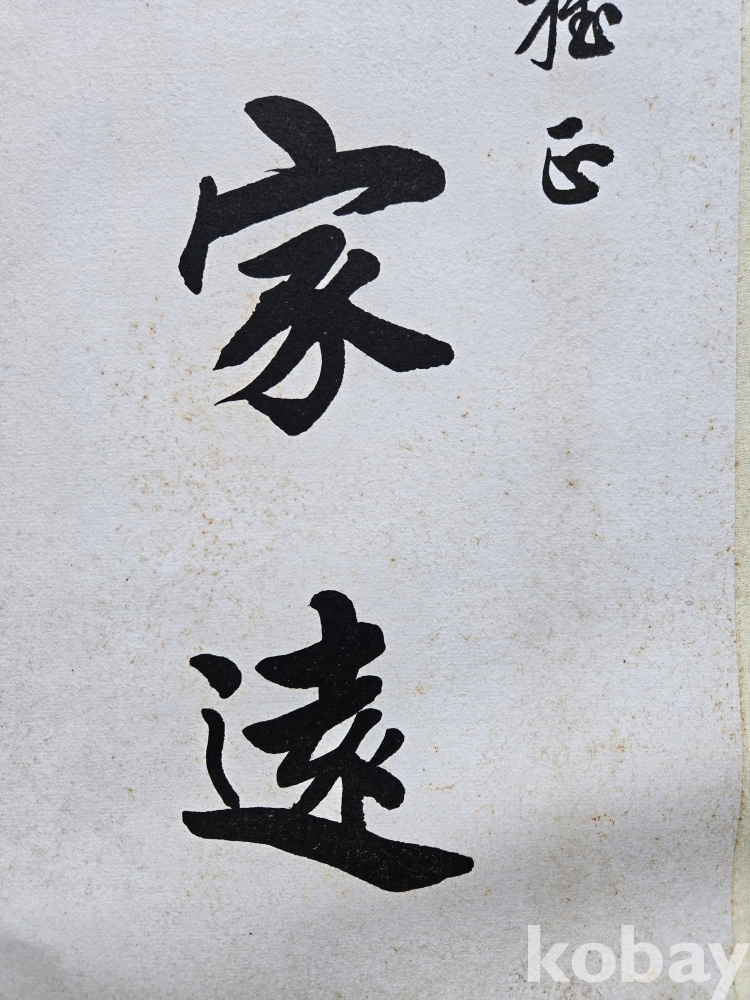 雅正
家遠
kobay